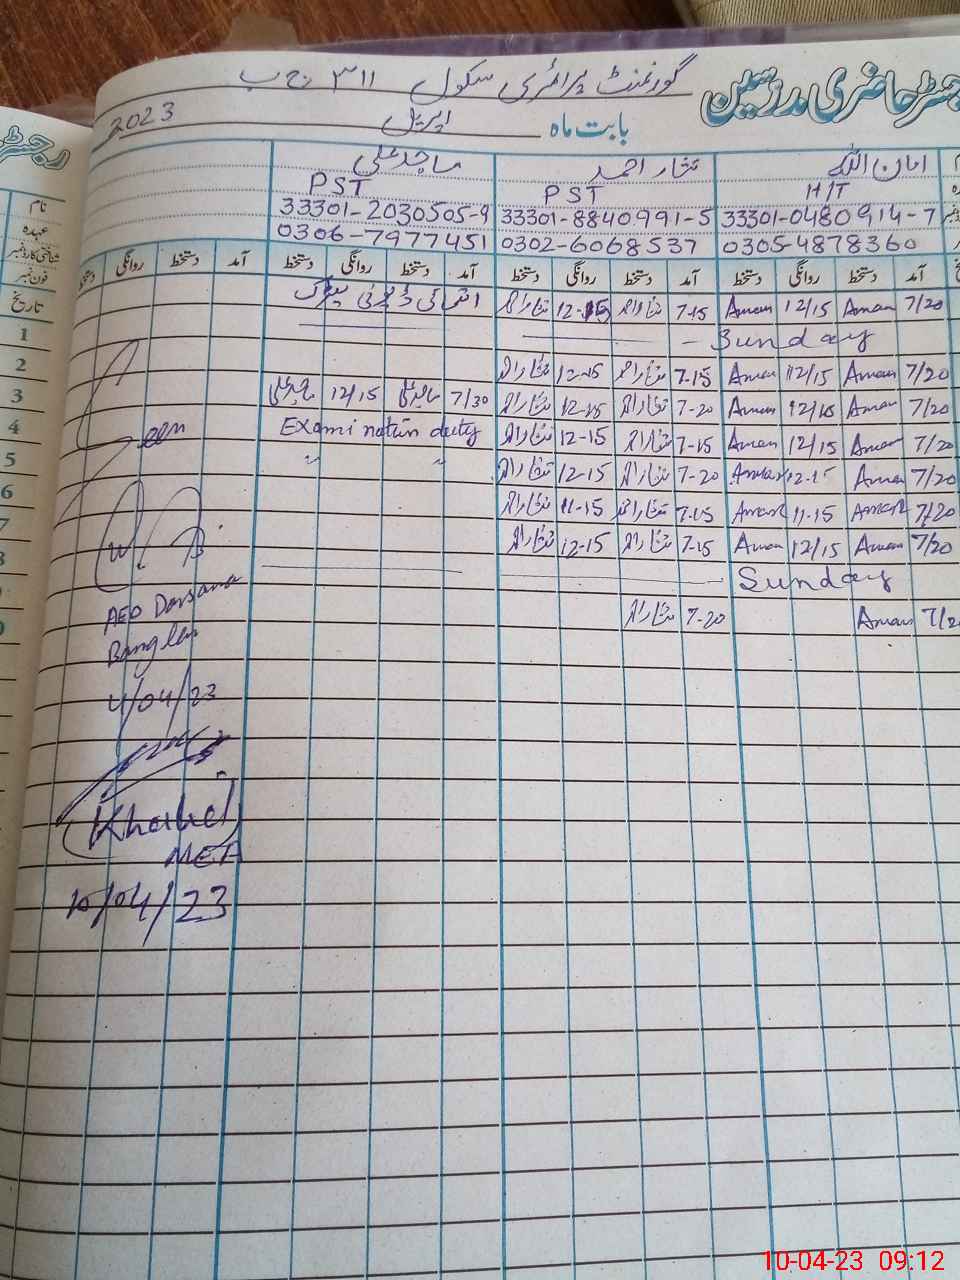 گورنمنٹ پرائمری سکول ۳۱۱ ج ب
رجسٹر حاضری مدرسین
بابت ماہ اپریل 2023
امان اللہ نثار احمد ماجد علی
PST PST نام
33301-0480914-7 33301-8840991-5 33301-2030505-9 عہدہ
0305-4878360 0302-6068537 0306-7977451 شناختی کارڈ نمبر
فون نمبر
آمد دستخط روانگی دستخط آمد دستخط روانگی دستخط آمد دستخط روانگی دستخط آمد دستخط روانگی دستخط تاریخ
7/20 Aman 12/15 Aman 7-15 نثار احمد 12-15 نثار احمد 1
Sunday 2
7/20 Aman 12/15 Aman 7-15 نثار احمد 12-15 نثار احمد 3
7/20 Aman 12/15 Aman 7-20 نثار احمد 12-15 نثار احمد 7/30 ماجد علی 12/15 ماجد علی 4
7/20 Aman 12/15 Aman 7-15 نثار احمد 12-15 نثار احمد Examination duty 5
7/20 Aman 12-15 Aman 7-20 نثار احمد 12-15 نثار احمد " " 6
7/20 Aman 11-15 Aman 7-15 نثار احمد 11-15 نثار احمد 7
7/20 Aman 12/15 Aman 7-15 نثار احمد 12-15 نثار احمد 8
Sunday
Aman 7-20 نثار احمد
Seen
AEO Darsana
Bangla
4/04/23
Khalid
MEA
10/04/23
10-04-23 09:12